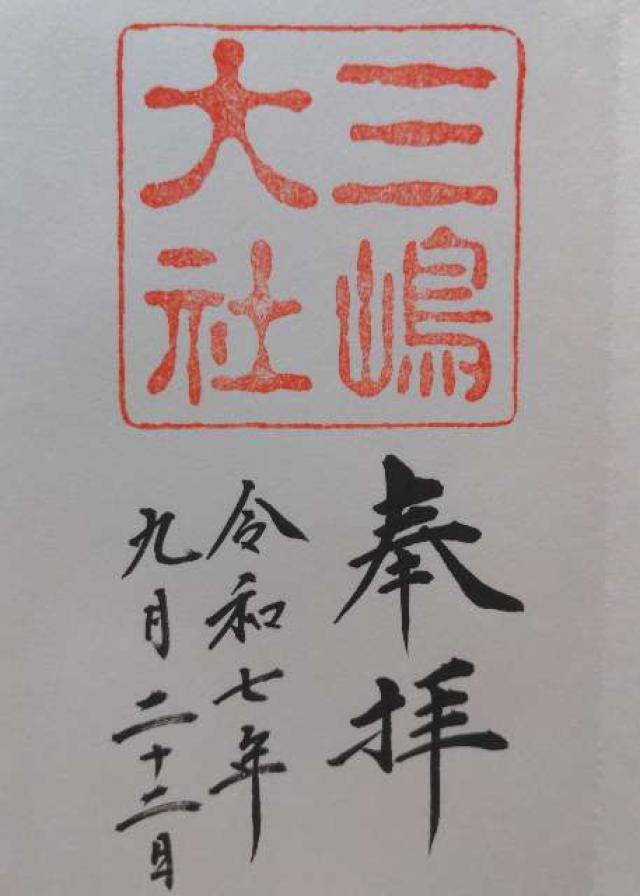 三嶋
大社
奉拝
令和七年
九月二十二日